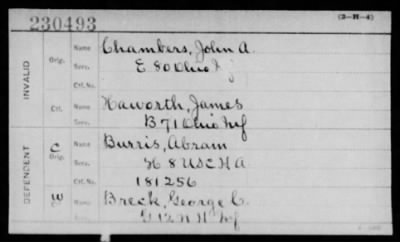 230493
(3-H-4)
INVALID
Orig.
Name Chambers, John A.
Serv. E 80 Ohio
Ctf. No.
Ctf.
Name Haworth, James
Serv. B 71 Ohio Inf
DEPENDENT
C
Orig.
Name Burris, Abram
Serv. H 8 USCHA
Ctf. No. 181256
W
Ctf.
Name Breck, George C.
Serv. G 12 N H Inf